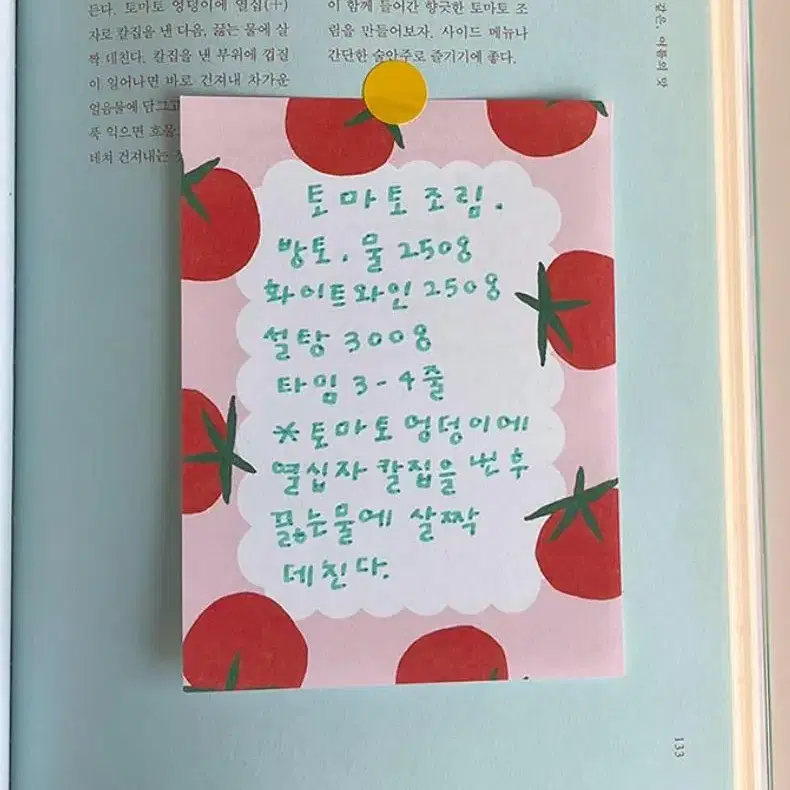 든다. 토마토 엉덩이에 열십(十)
자로 칼집을 낸 다음, 끓는 물에 살
짝 데친다. 칼집을 낸 부위에 껍질
이 일어나면 바로 건져내 차가운
얼음물에 담그고
푹 익으면 흐물
데쳐 건져내는
이 함께 들어간 향긋한 토마토 조
림을 만들어보자. 사이드 메뉴나
간단한 술안주로 즐기기에 좋다.
토마토조림.
방토. 물 250g
화이트와인 250g
설탕 300g
타임 3-4줄
*토마토 엉덩이에
열십자 칼집을 낸 후
끓는물에 살짝
데친다.
여름의 맛
133